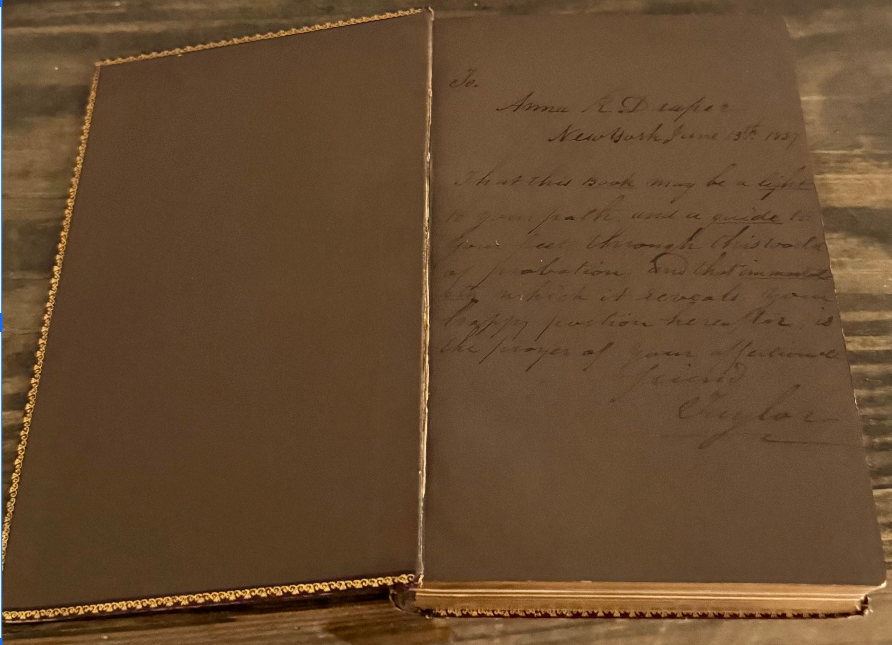 To.
Anna R Draper
New York June 13th 1837
That this Book may be a light
to your path and a guide to
your feet through this world
of probation and that immortal
ity which it reveals your
happy portion hereafter, is
the prayer of your affectionate
friend
Taylor